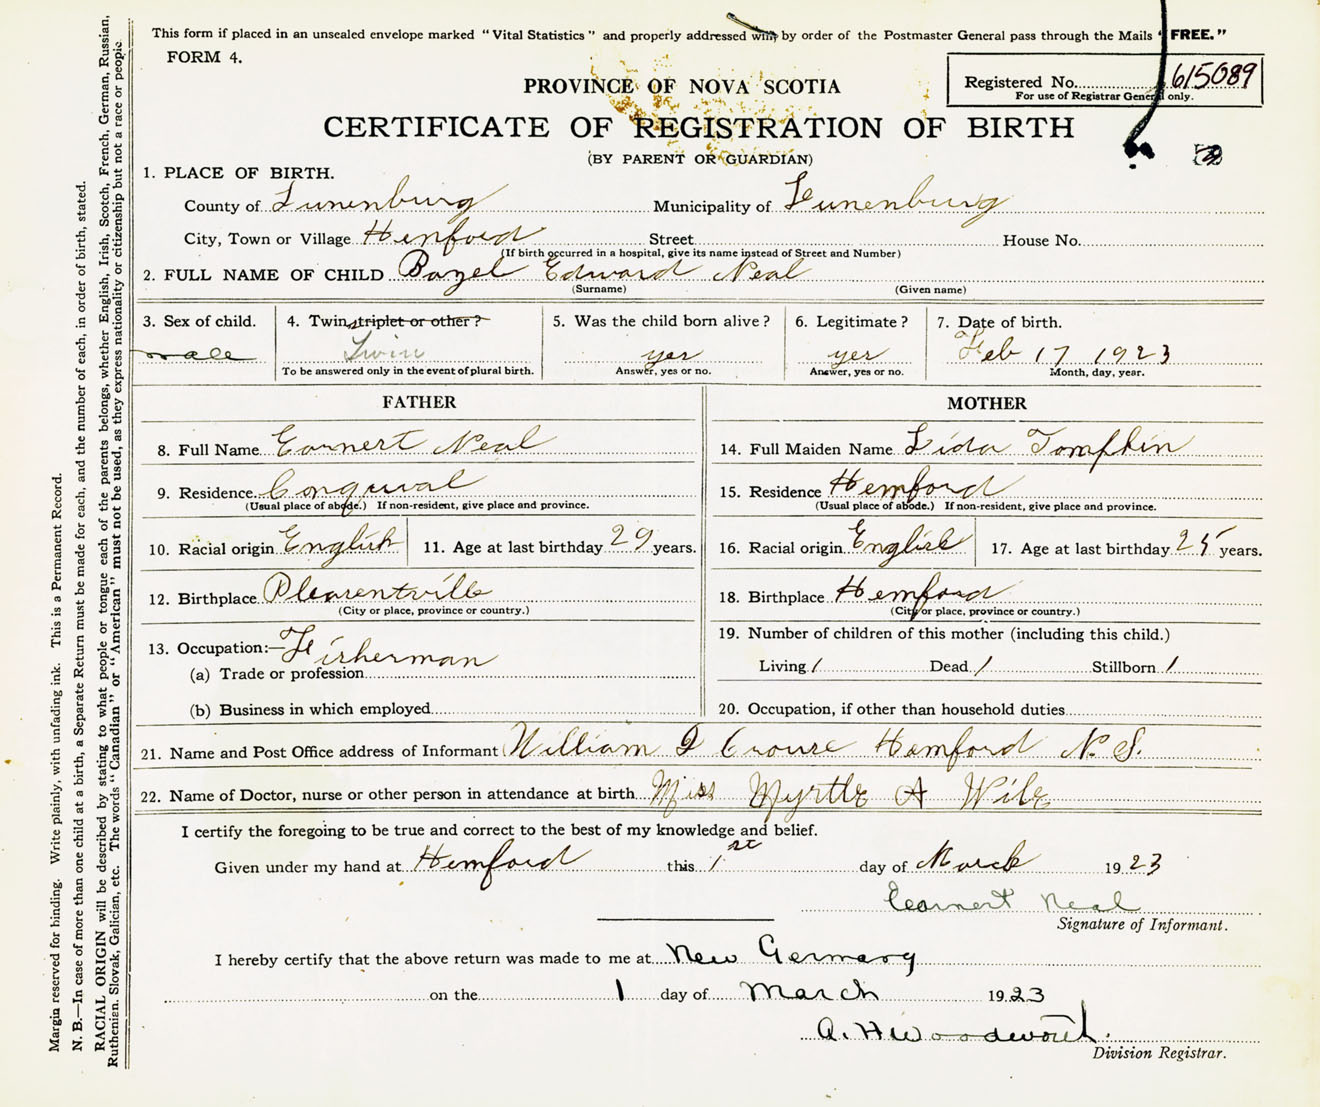 This form if placed in an unsealed envelope marked "Vital Statistics" and properly addressed will by order of the Postmaster General pass through the Mails "FREE."
FORM 4.
Registered No. 615089
For use of Registrar General only.
PROVINCE OF NOVA SCOTIA
CERTIFICATE OF REGISTRATION OF BIRTH
(BY PARENT OR GUARDIAN)
1. PLACE OF BIRTH.
County of Lunenburg Municipality of Lunenburg
City, Town or Village Hemford Street House No.
(If birth occurred in a hospital, give its name instead of Street and Number)
2. FULL NAME OF CHILD Bazel Edward Neal
(Surname) (Given name)
3. Sex of child. 4. Twin, triplet or other? 5. Was the child born alive? 6. Legitimate? 7. Date of birth.
male Twin yes yes Feb 17 1923
To be answered only in the event of plural birth. Answer, yes or no. Answer, yes or no. Month, day, year.
FATHER
8. Full Name Earnest Neal
9. Residence Conqural
(Usual place of abode.) If non-resident, give place and province.
10. Racial origin English 11. Age at last birthday 29 years.
12. Birthplace Plesentville
(City or place, province or country.)
13. Occupation:— Fisherman
(a) Trade or profession
(b) Business in which employed
MOTHER
14. Full Maiden Name Lida Tompkin
15. Residence Hemford
(Usual place of abode.) If non-resident, give place and province.
16. Racial origin English 17. Age at last birthday 25 years.
18. Birthplace Hemford
(City or place, province or country.)
19. Number of children of this mother (including this child.)
Living 1 Dead 1 Stillborn 1
20. Occupation, if other than household duties
21. Name and Post Office address of Informant William D Crouse Hemford N. S.
22. Name of Doctor, nurse or other person in attendance at birth Miss Myrtle A Wile
I certify the foregoing to be true and correct to the best of my knowledge and belief.
Given under my hand at Hemford this 1st day of March 1923
Earnest Neal
Signature of Informant.
I hereby certify that the above return was made to me at New Germany
on the 1 day of March 1923
A. H Woodworth.
Division Registrar.
Margin reserved for binding. Write plainly, with unfading ink. This is a Permanent Record.
N. B.—In case of more than one child at a birth, a Separate Return must be made for each, and the number of each, in order of birth, stated.
RACIAL ORIGIN will be described by stating to what people or tongue each of the parents belongs, whether English, Irish, Scotch, French, German, Russian,
Ruthenian, Slovak, Galician, etc. The words "Canadian" or "American" must not be used, as they express nationality or citizenship but not a race or people.